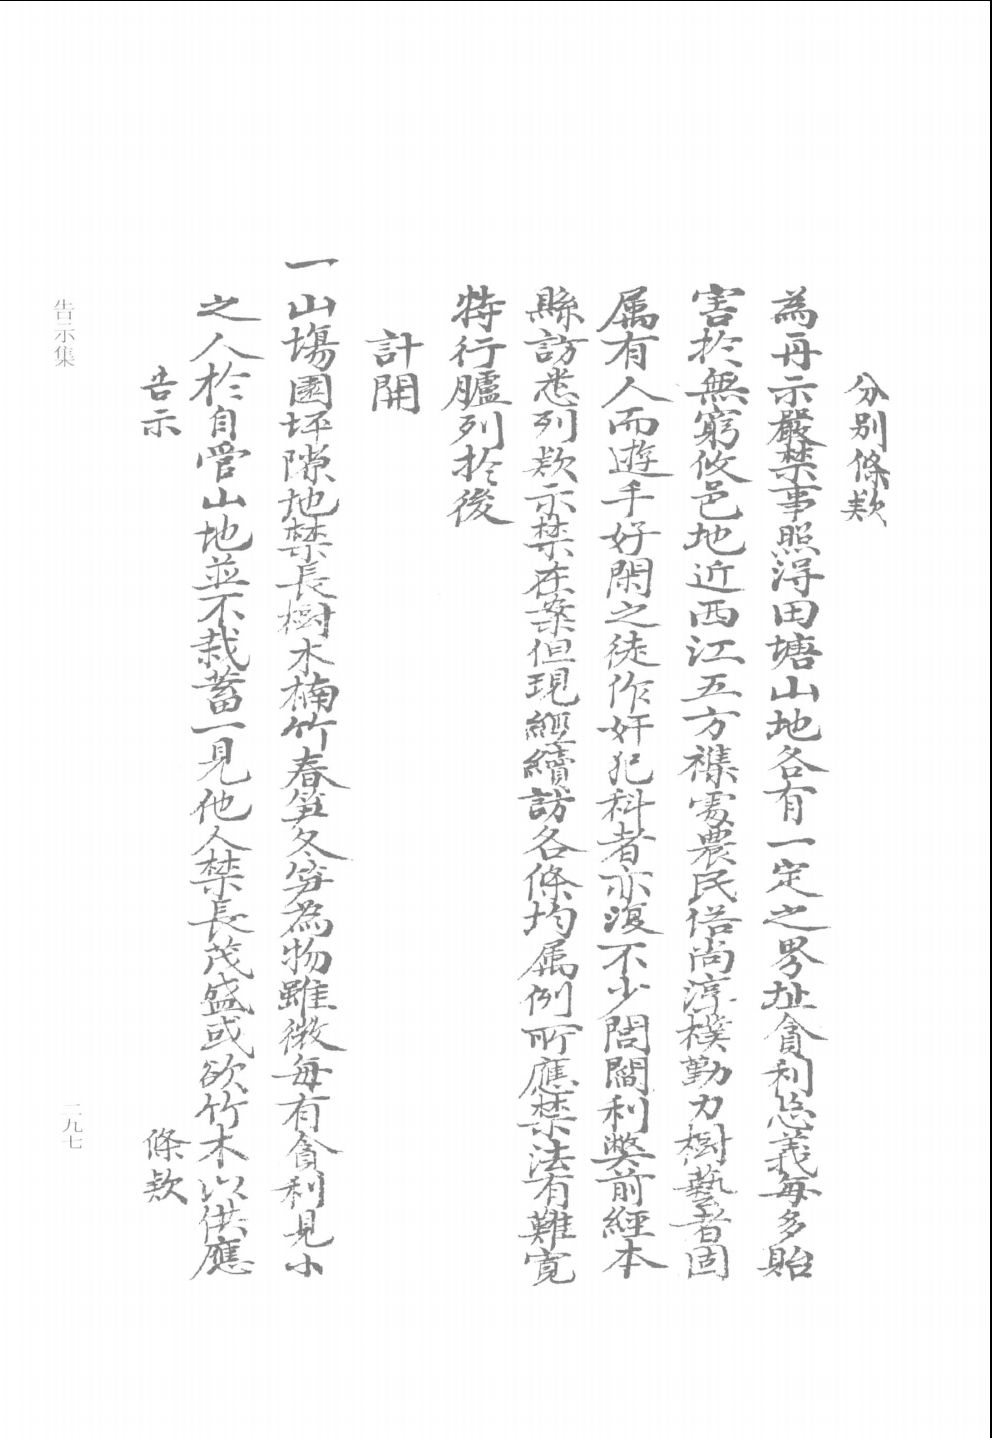 分別條欵
為再示嚴禁事照得田塘山地各有一定之界址貪利忘義每多貽
害於無窮攸邑地近西江五方襍處農民俗尚淳樸勤力樹藝者固
属有人而遊手好閑之徒作奸犯科者亦復不少閭閻利獘前經本
縣訪悉列欵示禁在案但現經續訪各條均属例所應禁法有難寬
特行臚列於後
計開
一山塲園坪隙地禁長樹木楠竹春笋冬笋為物雖微每有貪利見小
之人於自管山地並不栽蓄一見他人禁長茂盛或欲竹木以供應
告示 條欵
告示集
二九七